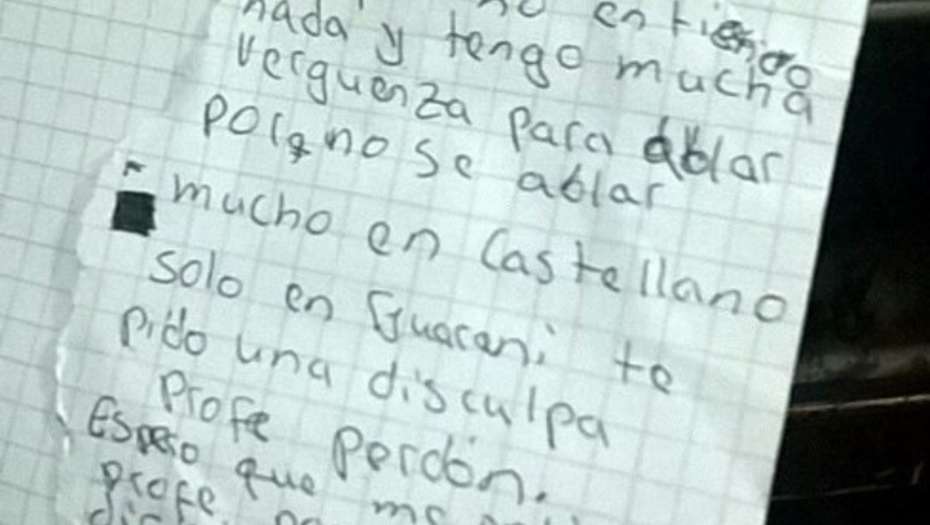 nada y no entiendo
tengo mucha
verguenza para ablar
porq no se ablar
mucho en Castellano
solo en Guarani te
pido una disculpa
Profe Perdón.
Espero que me
profe